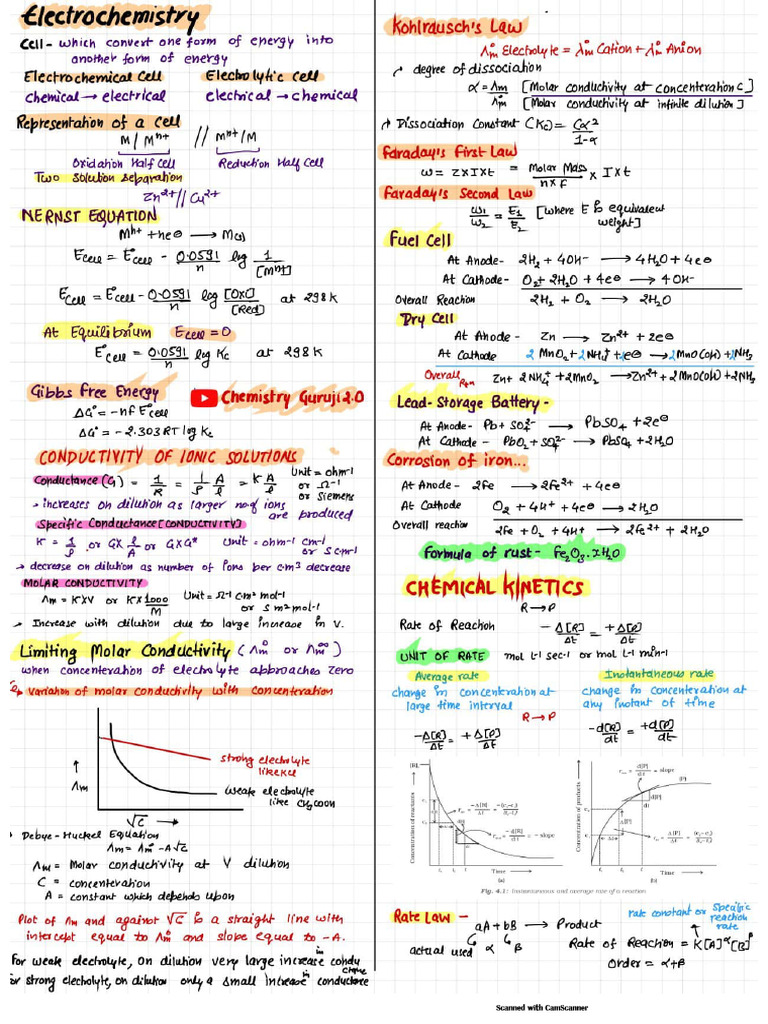 Electrochemistry
Cell - which convert one form of energy into
another form of energy
Electrochemical Cell Electrolytic cell
chemical → electrical electrical → chemical
Representation of a cell
M / Mⁿ⁺ // Mⁿ⁺/M
Oxidation Half Cell Reduction Half Cell
Two solution separation
Zn²⁺ // Cu²⁺
NERNST EQUATION
Mⁿ⁺ + ne⊖ → M(s)
Ecell = E°cell - 0.0591/n log 1/[Mⁿ⁺]
Ecell = E°cell - 0.0591/n log [Oxd]/[Red] at 298K
At Equilibrium Ecell = 0
E°cell = 0.0591/n log Kc at 298K
Gibbs Free Energy
Chemistry Guruji 2.0
ΔG° = -nF E°cell
ΔG° = -2.303RT log Kc
CONDUCTIVITY OF IONIC SOLUTIONS
Conductance (G) = 1/R = 1/ρ A/l = K A/l Unit = ohm-1 or Ω-1 or Siemens
→ increases on dilution as larger no. of ions
are produced
Specific Conductance [CONDUCTIVITY]
K = 1/ρ or G× l/A or G×G* Unit = ohm-1 cm-1
or S cm-1
→ decrease on dilution as number of ions per cm³ decrease
MOLAR CONDUCTIVITY
Λm = K×V or K×1000/M Unit = Ω-1 cm² mol-1
or S m² mol-1
→ Increase with dilution due to large increase in V.
Limiting Molar Conductivity (Λm° or Λm∞)
when concenteration of electrolyte approaches zero
Variation of molar conductivity with Concenteration
strong electrolyte
like KCl
↑
Λm
weak electrolyte
like CH₃COOH
√C →
Debye-Huckel Equation
Λm = Λm° - A√C
Λm = Molar conductivity at V dilution
C = concenteration
A = constant which depends upon
Plot of Λm and against √C is a straight line with
intercept equal to Λm° and slope equal to -A.
For weak electrolyte, on dilution very large increase in condu
for strong electolyte, on dilution only a small Increase in conductance
Kohlrausch's Law
Λm° Electrolyte = λm° Cation + λm° Anion
degree of dissociation
α = Λm/Λm° [Molar conductivity at concenteration C]
[Molar conductivity at infinite dilution]
Dissociation Constant (Kc) = Cα²/1-α
Faraday's First Law
w = Z×I×t = Molar Mass/n×F × I×t
Faraday's Second Law
w₁/w₂ = E₁/E₂ [where E is equivalent
weight]
Fuel Cell
At Anode- 2H₂ + 4OH- → 4H₂O + 4e⊖
At Cathode- O₂ + 2H₂O + 4e⊖ → 4OH-
Overall Reaction 2H₂ + O₂ → 2H₂O
Dry Cell
At Anode - Zn → Zn²⁺ + 2e⊖
At Cathode 2MnO₂ + 2NH₄⁺ + 2e⊖ → 2MnO(OH) + 2NH₃
Overall Rxn Zn + 2NH₄⁺ + 2MnO₂ → Zn²⁺ + 2MnO(OH) + 2NH₃
Lead-Storage Battery-
At Anode- Pb + SO₄²⁻ → PbSO₄ + 2e⊖
At Cathode - PbO₂ + SO₄²⁻ → PbSO₄ + 2H₂O
Corrosion of iron...
At Anode- 2Fe → 2Fe²⁺ + 4e⊖
At Cathode O₂ + 4H⁺ + 4e⊖ → 2H₂O
Overall reaction 2Fe + O₂ + 4H⁺ → 2Fe²⁺ + 2H₂O
Formula of rust- Fe₂O₃.xH₂O
CHEMICAL KINETICS
R → P
Rate of Reaction -Δ[R]/Δt = +Δ[P]/Δt
UNIT OF RATE mol L-1 sec-1 or mol L-1 min-1
Average rate Instantaneous rate
change in concenteration at change in concenteration at
large time interval any instant of time
R → P
-Δ[R]/Δt = +Δ[P]/Δt -d[R]/dt = +d[P]/dt
Concentration of reactants
Time
(a)
Concentration of products
Time
(b)
Fig. 4.1: Instantaneous and average rate of a reaction
Rate Law -
aA + bB → Product
rate constant or Specific reaction rate
actual used α β
Rate of Reaction = K[A]^α[B]^β
Order = α+β
Scanned with CamScanner